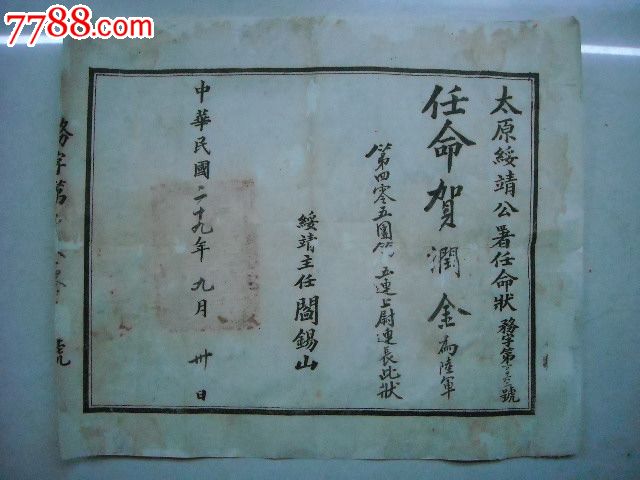 7788.com
太原綏靖公署任命狀 務字第號
任命賀潤金為陸軍
第四零五團第五連上尉連長此狀
綏靖主任閻錫山
中華民國二十九年九月卅日
務字第號